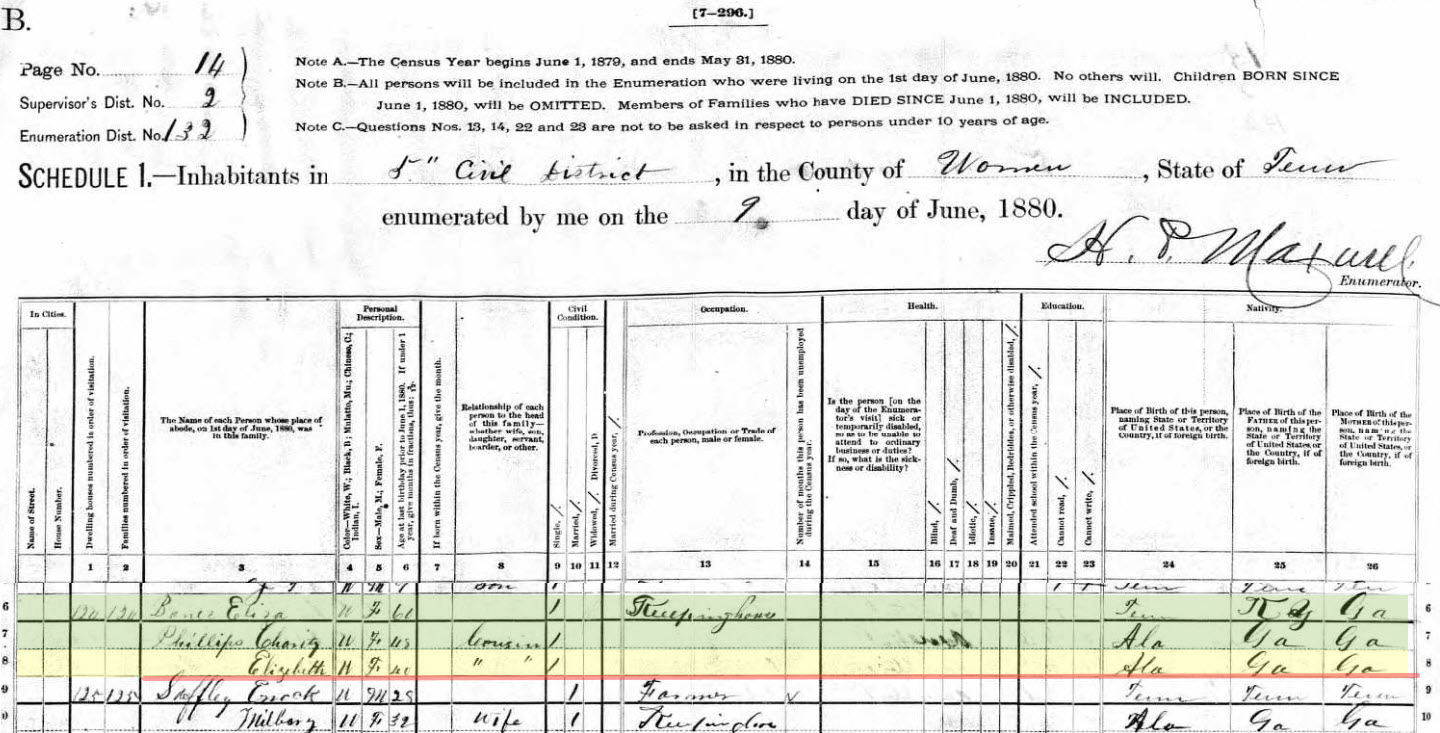 B.
[7–296.]
Page No. 14
Supervisor's Dist. No. 2
Enumeration Dist. No. 132
Note A.—The Census Year begins June 1, 1879, and ends May 31, 1880.
Note B.—All persons will be included in the Enumeration who were living on the 1st day of June, 1880. No others will. Children BORN SINCE
June 1, 1880, will be OMITTED. Members of Families who have DIED SINCE June 1, 1880, will be INCLUDED.
Note C.—Questions Nos. 13, 14, 22 and 23 are not to be asked in respect to persons under 10 years of age.
SCHEDULE 1.—Inhabitants in 5" Civil District, in the County of Warren, State of Tenn
enumerated by me on the 9 day of June, 1880.
H. P. Maxwell
Enumerator.
In Cities.
Personal Description.
Civil Condition.
Occupation.
Health.
Education.
Nativity.
Name of Street.
House Number.
Dwelling houses numbered in order of visitation.
Families numbered in order of visitation.
The Name of each Person whose place of abode, on 1st day of June, 1880, was in this family.
Color—White, W.; Black, B.; Mulatto, Mu.; Chinese, C.; Indian, I.
Sex—Male, M.; Female, F.
Age at last birthday prior to June 1, 1880. If under 1 year, give months in fractions, thus: 3/12
If born within the Census year, give the month.
Relationship of each person to the head of this family—whether wife, son, daughter, servant, boarder, or other.
Single, /.
Married, /.
Widowed, /. Divorced, D.
Married during Census year, /.
Profession, Occupation or Trade of each person, male or female.
Number of months this person has been unemployed during the Census year.
Is the person [on the day of the Enumerator's visit] sick or temporarily disabled, so as to be unable to attend to ordinary business or duties? If so, what is the sickness or disability?
Blind, /.
Deaf and Dumb, /.
Idiotic, /.
Insane, /.
Maimed, Crippled, Bedridden, or otherwise disabled, /.
Attended school within the Census year, /.
Cannot read, /.
Cannot write, /.
Place of Birth of this person, naming State or Territory of United States, or the Country, if of foreign birth.
Place of Birth of the FATHER of this person, naming the State or Territory of United States, or the Country, if of foreign birth.
Place of Birth of the MOTHER of this person, naming the State or Territory of United States, or the Country, if of foreign birth.
1 2 3 4 5 6 7 8 9 10 11 12 13 14 15 16 17 18 19 20 21 22 23 24 25 26
W M Son 1 Tenn Tenn Ten
6 124 124 Eliza W F 60 1 Keeping house Tenn Ky Ga 6
7 Phillips Charity W F 48 Cousin 1 Ala Ga Ga 7
8 Elizebeth W F 40 " " 1 Ala Ga Ga 8
9 125 125 Enock W M 28 1 Farmer Tenn Tenn Tenn 9
10 W F 32 Wife 1 Ala Ga Ga 10